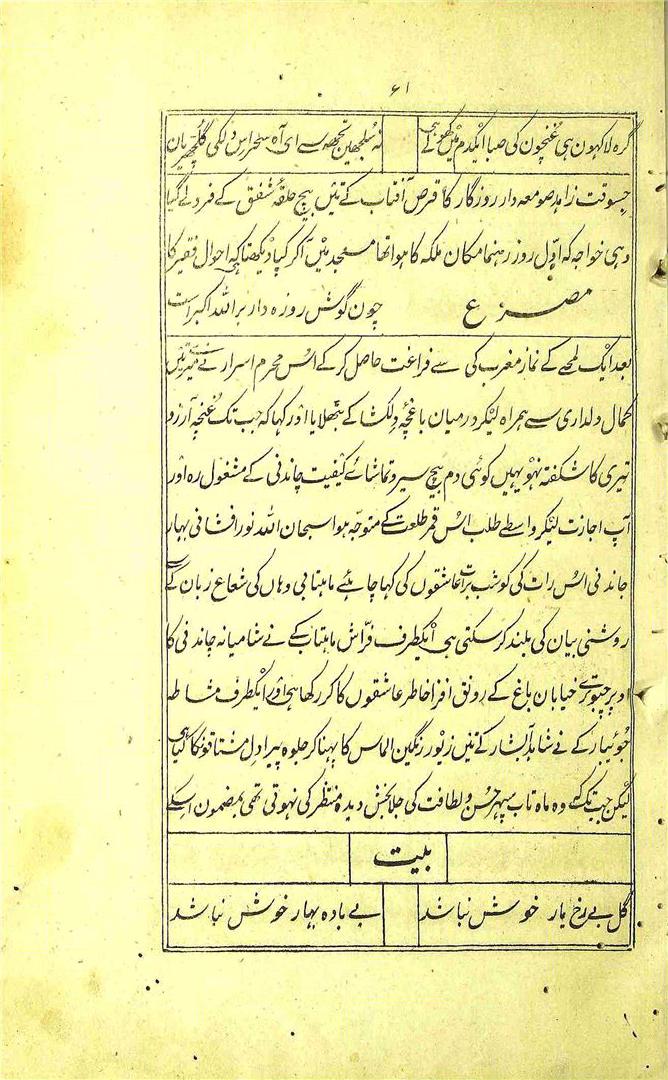 ۶۱
گرہ لاکہون ہی غنچون کی صبا ایکدم مین کھولے ہی نہ سلجھین تجھہ سے ای آہ سحر اس دلکی گلچھریان
جسوقت زاہد صومعہ دار روزگار کا قرص آفتاب کے تئین بیچ حلقۂ شفق کے فرو لے گیا
وہی خواجہ کہ اوّل روز رہنما مکان ملکہ کا ہوا تھا مسجد مین آکر کیا دیکھتا ہی کہ احوال فقیر کا
مصرع چون گوش روزہ دار بر اللہ اکبر است
بعد ایک لمحے کے نماز مغرب کی سے فراغت حاصل کر کے اُس محرم اسرار نے میرے تئین
کمال دلداری سے ہمراہ لیکر درمیان باغچۂ دلکشا کے بٹھلایا اور کہا کہ جب تک غنچہ آرزو
تیری کا شگفتہ نہو یہین کوئی دم بیچ سیر و تماشائے کیفیت چاندنی کے مشغول رہ اور
آپ اجازت لیکر واسطے طلب اُس قمر طلعت کے متوجہ ہوا سبحان اللہ نور افشانی بہار
چاندنی اُس رات کی کو شب برات عاشقون کی کہا چاہئے ماہتابی وہان کی شعاع زبان کے
روشنی بیان کی بلند کر سکتی ہی ایکطرف فرّاش ماہتاب کے نے شامیانہ چاندنی کا
اوپر چبوترے خیابان باغ کے رونق افزا خاطر عاشقون کا کر رکھا ہی اور ایکطرف مشاطہ
جوئیبار کے نے شاہد آبشار کے تئین زیور رنگین الماس کا پہنا کر جلوہ پیرا دل مشتاقونکا کیا ہی
لیکن جب تک کہ وہ ماہ تاب سپہر حسن و لطافت کی جلا بخش دیدہ منتظر کی نہوتی تھی بمضمون اسکے
بیت
گل بے رخ یار خوش نباشد بے بادہ بہار خوش نباشد